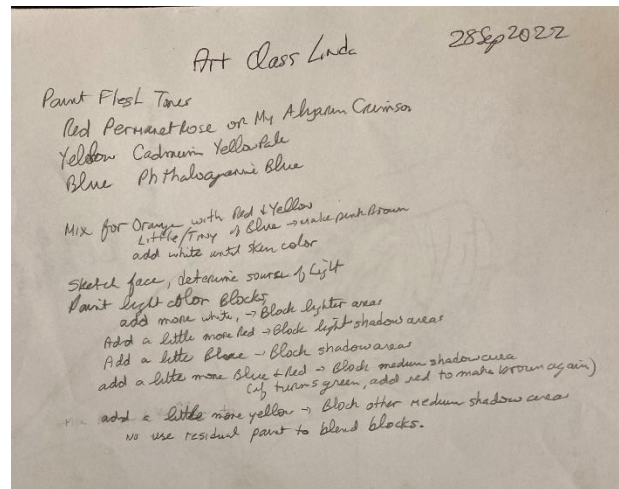 Art Class Linda
28Sep2022
Paint Flesh Tones
Red Permanet Rose or My Alyarin Crimson
Yellow Cadmium Yellow Pale
Blue Phthaloganine Blue
Mix for Orange with Red + Yellow
Little/Tiny of Blue → make pink Brown
add white until sken color
Sketch face, determine source of Light
Paint light color Blocks
add more white, → Block lighter areas
Add a little more Red → Block light shadow areas
Add a little Blue → Block shadow areas
add a little more Blue + Red → Block medium shadow area
(if turns green, add red to make brown again)
add a little more yellow → Block other medium shadow area
No use residual paint to blend blocks.